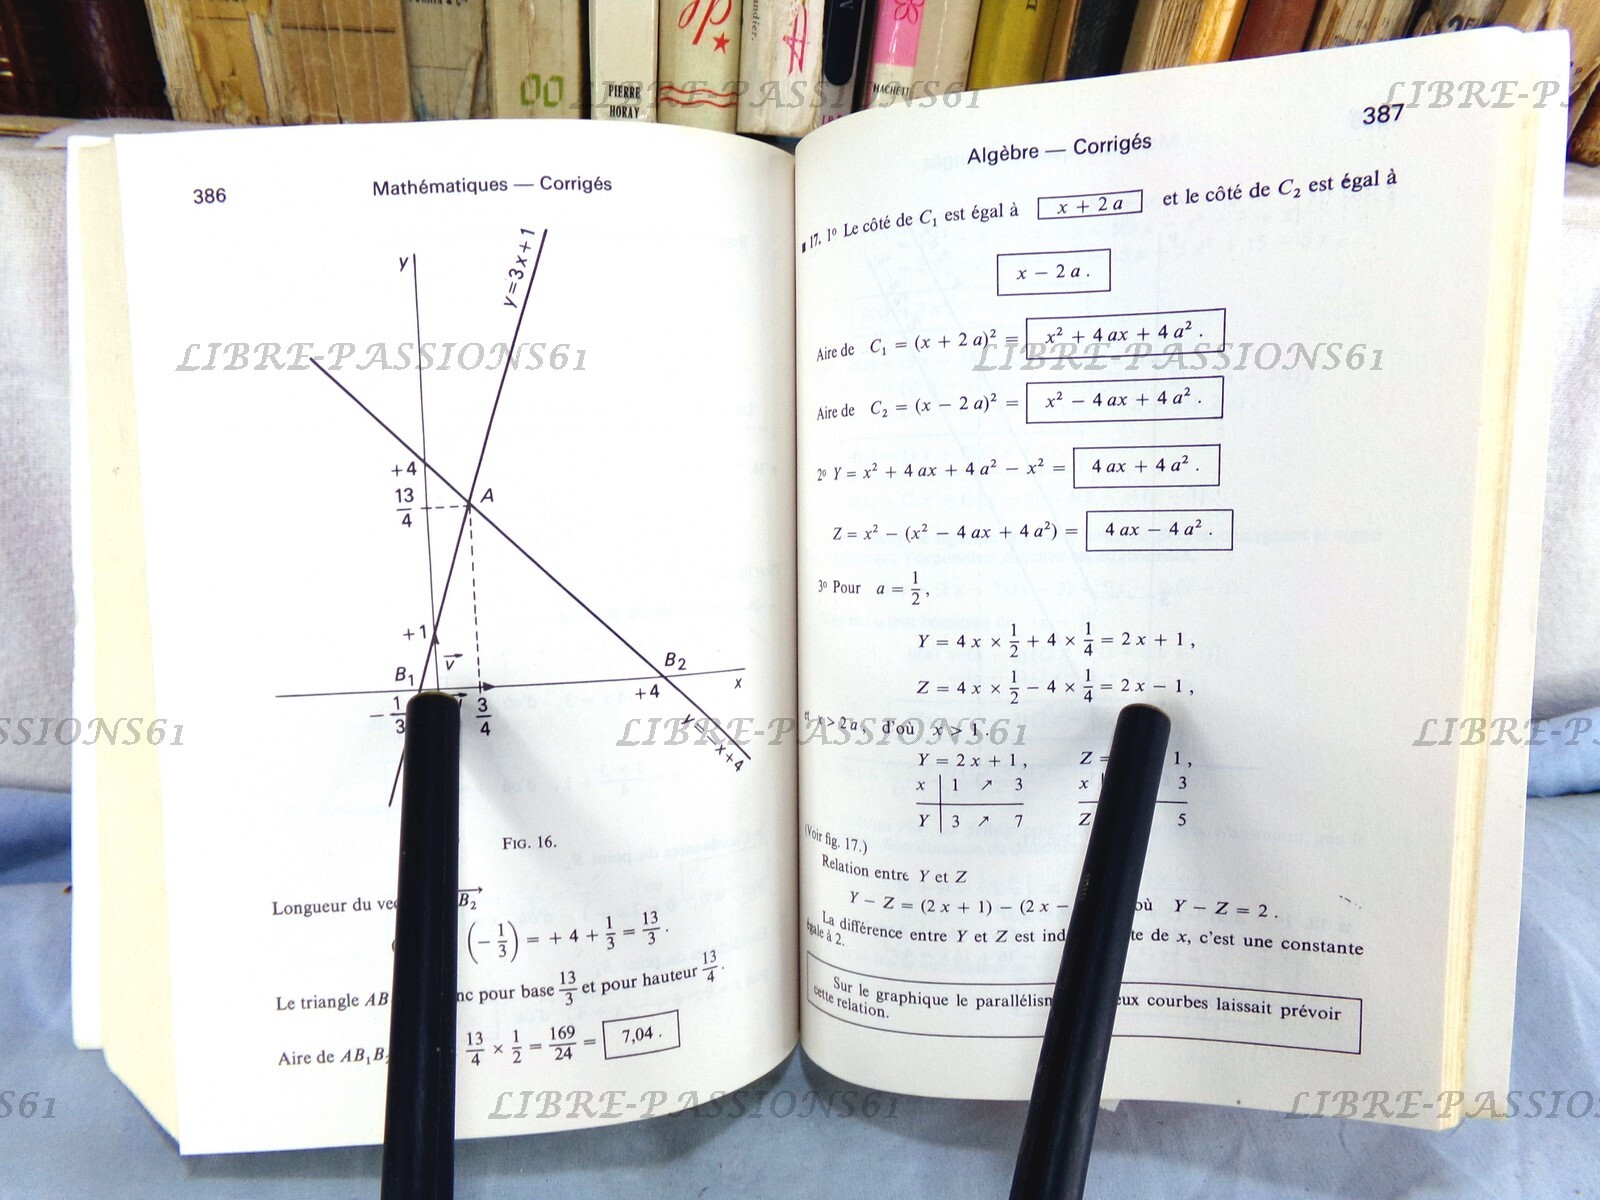 PIERRE
HORAY
HACHETTE
LIBRE-PASSIONS61
386
Mathématiques — Corrigés
y
y = 3x + 1
+4
13/4
A
+1
v
B₁
B₂
x
− 1/3
3/4
+4
y = −x + 4
FIG. 16.
Longueur du B₂
(− 1/3) = + 4 + 1/3 = 13/3 .
Le triangle AB pour base 13/3 et pour hauteur 13/4 .
Aire de AB₁B 13/4 × 1/2 = 169/24 = 7,04 .
387
Algèbre — Corrigés
17. 1º Le côté de C₁ est égal à x + 2 a et le côté de C₂ est égal à
x − 2 a .
Aire de C₁ = (x + 2 a)² = x² + 4 ax + 4 a² .
Aire de C₂ = (x − 2 a)² = x² − 4 ax + 4 a² .
2º Y = x² + 4 ax + 4 a² − x² = 4 ax + 4 a² .
Z = x² − (x² − 4 ax + 4 a²) = 4 ax − 4 a² .
3º Pour a = 1/2 ,
Y = 4 x × 1/2 + 4 × 1/4 = 2 x + 1 ,
Z = 4 x × 1/2 − 4 × 1/4 = 2 x − 1 ,
et x > 2 a, d'où x > 1 .
Y = 2 x + 1 , Z = 1 ,
x | 1 ↗ 3 x | 3
Y | 3 ↗ 7 Z 5
(Voir fig. 17.)
Relation entre Y et Z
Y − Z = (2 x + 1) − (2 x − où Y − Z = 2 .
La différence entre Y et Z est de x, c'est une constante
égale à 2.
Sur le graphique le courbes laissait prévoir
cette relation.